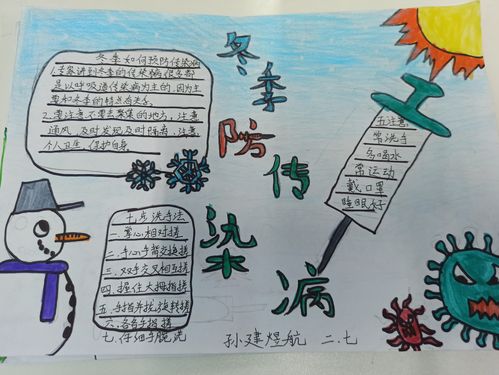 冬季如何预防传染病
1.专家讲到冬季的传染病很多都
是以呼吸道传染病为主的,因为主
要和冬季的特点有关系。
2.要注意不要去聚集的地方,注意
通风,及时发现及时隔离,注意
个人卫生,保护自身
冬季
防传
染病
五注意
常洗手
多喝水
常运动
戴口罩
睡眠好
七步洗手法
一.掌心相对搓
二.手心手背交换搓
三.双手交叉相互搓
四.握住大拇指搓
五.手指并拢旋转搓
六.各各手指搓
七.仔细手腕洗
孙建煜航 二.七